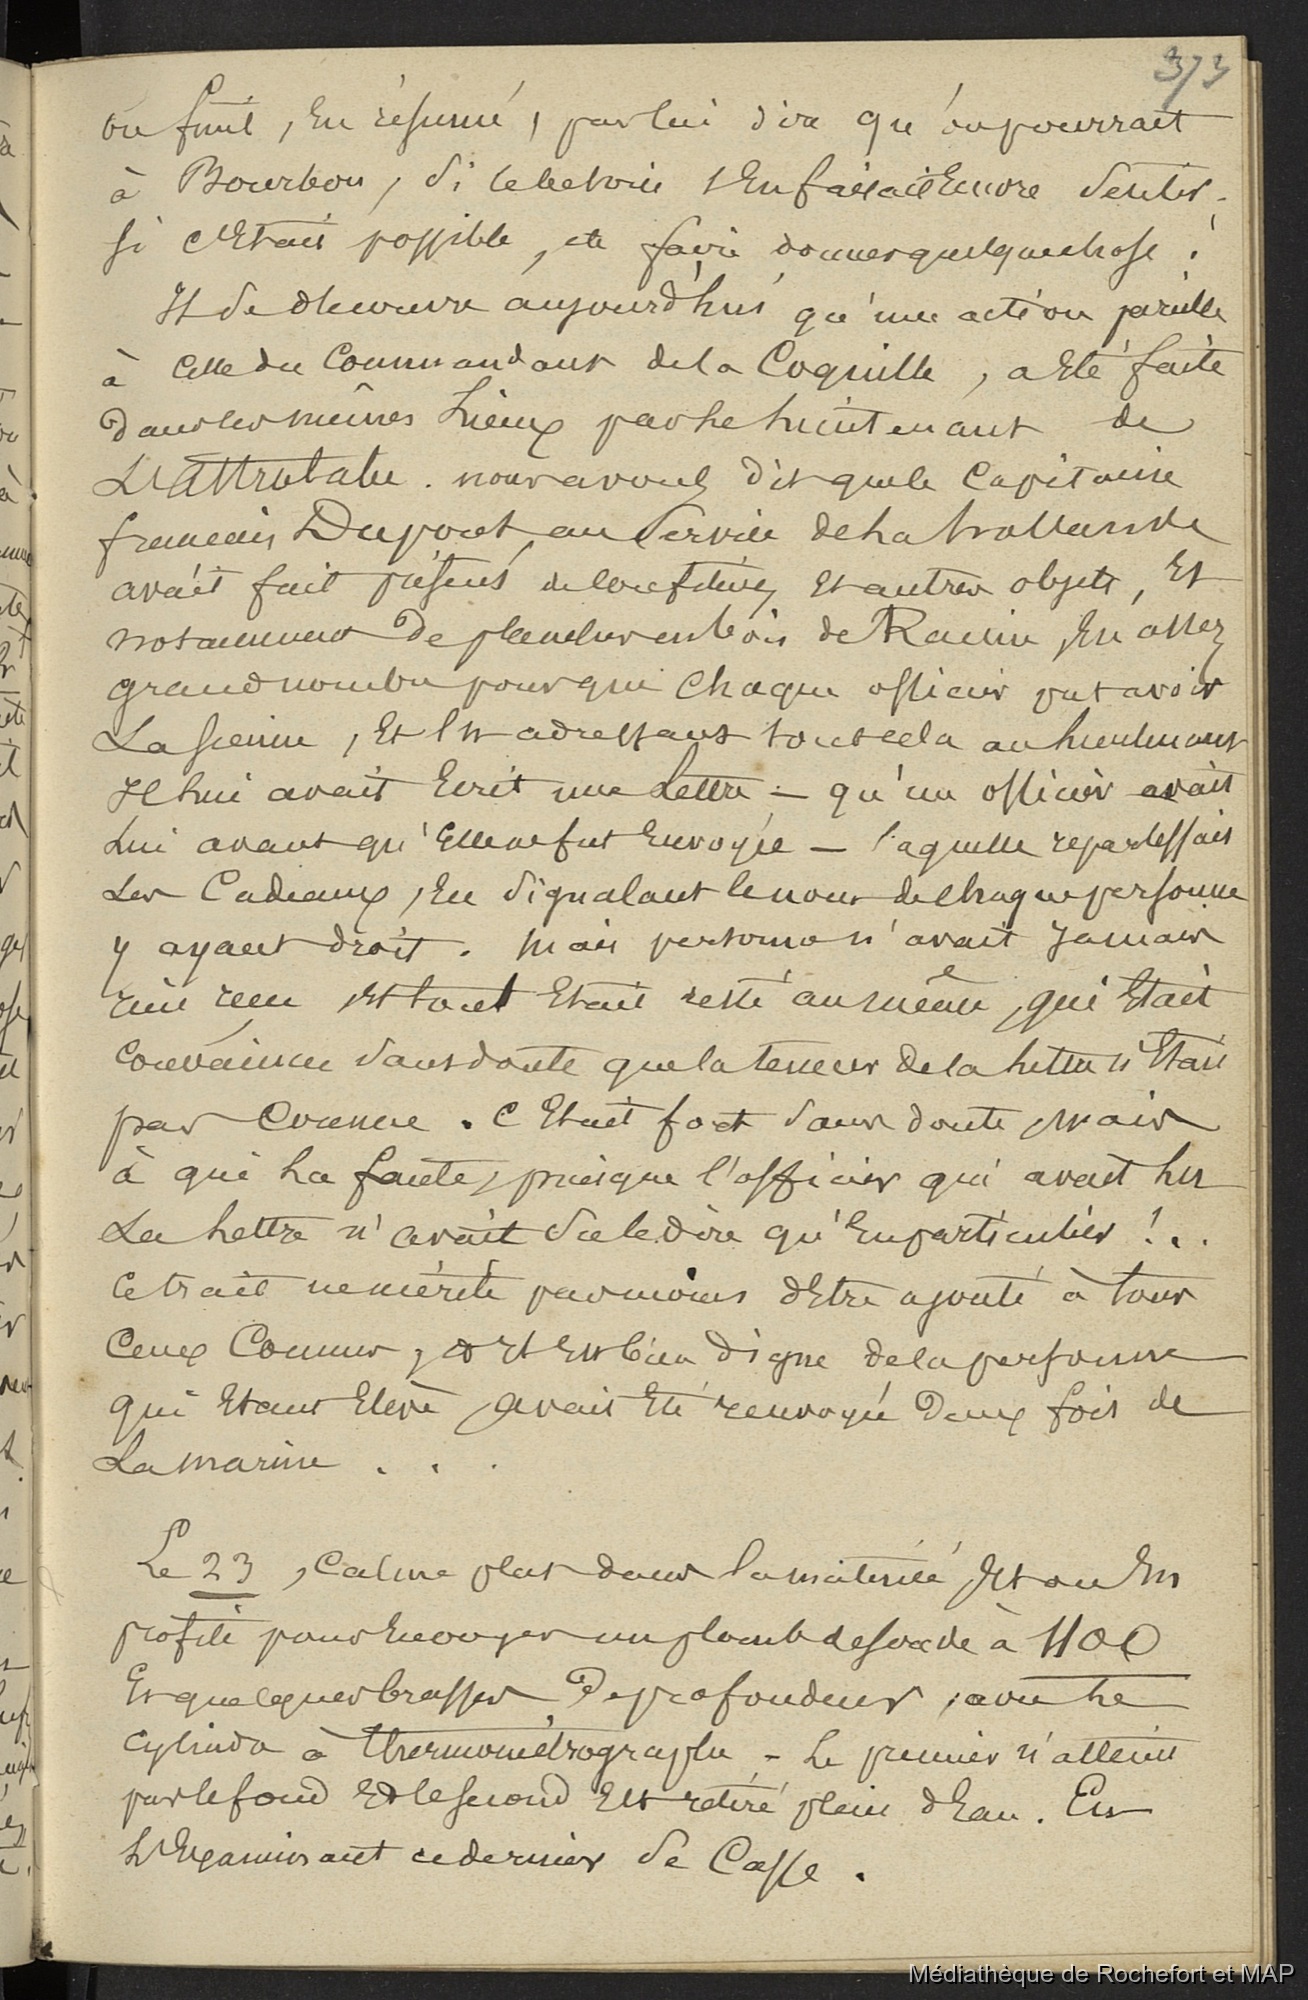 373
on finit, En résumé, par lui dire qu'on pourrait
à Bourbon, si le besoin s'En faisait Encore sentir,
si c'Etait possible, se faire donner quelque chose !
Il se découvre aujourd'hui qu'une action pareille
à celle du Commandant de la Coquille, a Eté faite
dans les mêmes Lieux par Le Lieutenant de
L'Astrolabe. nous avons dit que le Capitaine
français Dupont au service de La hollande
avait fait présent de confitures Et autres objets, Et
notamment de planches en bois de Racine, En assez
grand nombre pour que chaque officier put avoir
La sienne, Et En adressant tout cela au Lieutenant
Il Lui avait Ecrit une Lettre – qu'un officier avait
Lui avant qu'Elle ne fut Envoyée – laquelle repartissait
Les Cadeaux, En signalant le nom de chaque personne
y ayant droit. Mais personne n'avait Jamais
rien reçu Et tout Etait resté au même, qui Etait
convaincu sans doute que la teneur de la Lettre n'Etait
pas connue. C'Etait fort sans doute, mais
à qui La faute, puisque l'officier qui avait Lu
La Lettre n'avait su le dire qu'En particulier !..
Ce trait ne mérite pas moins d'Etre ajouté à tous
Ceux Connus, Et Est bien digne de la personne
qui Etant Elève, avait Eté renvoyé Deux fois de
La marine . . .
Le 23, Calme plat dans la matinée, Et on En
profite pour Envoyer un plomb de sonde à 1100
Et quelques brasses De profondeur, avec Le
cylindre à thermométrographe – Le premier n'atteint
pas le fond Et le second Est retiré plein d'Eau. En
L'Examinant ce dernier se Casse.
Médiathèque de Rochefort et MAP